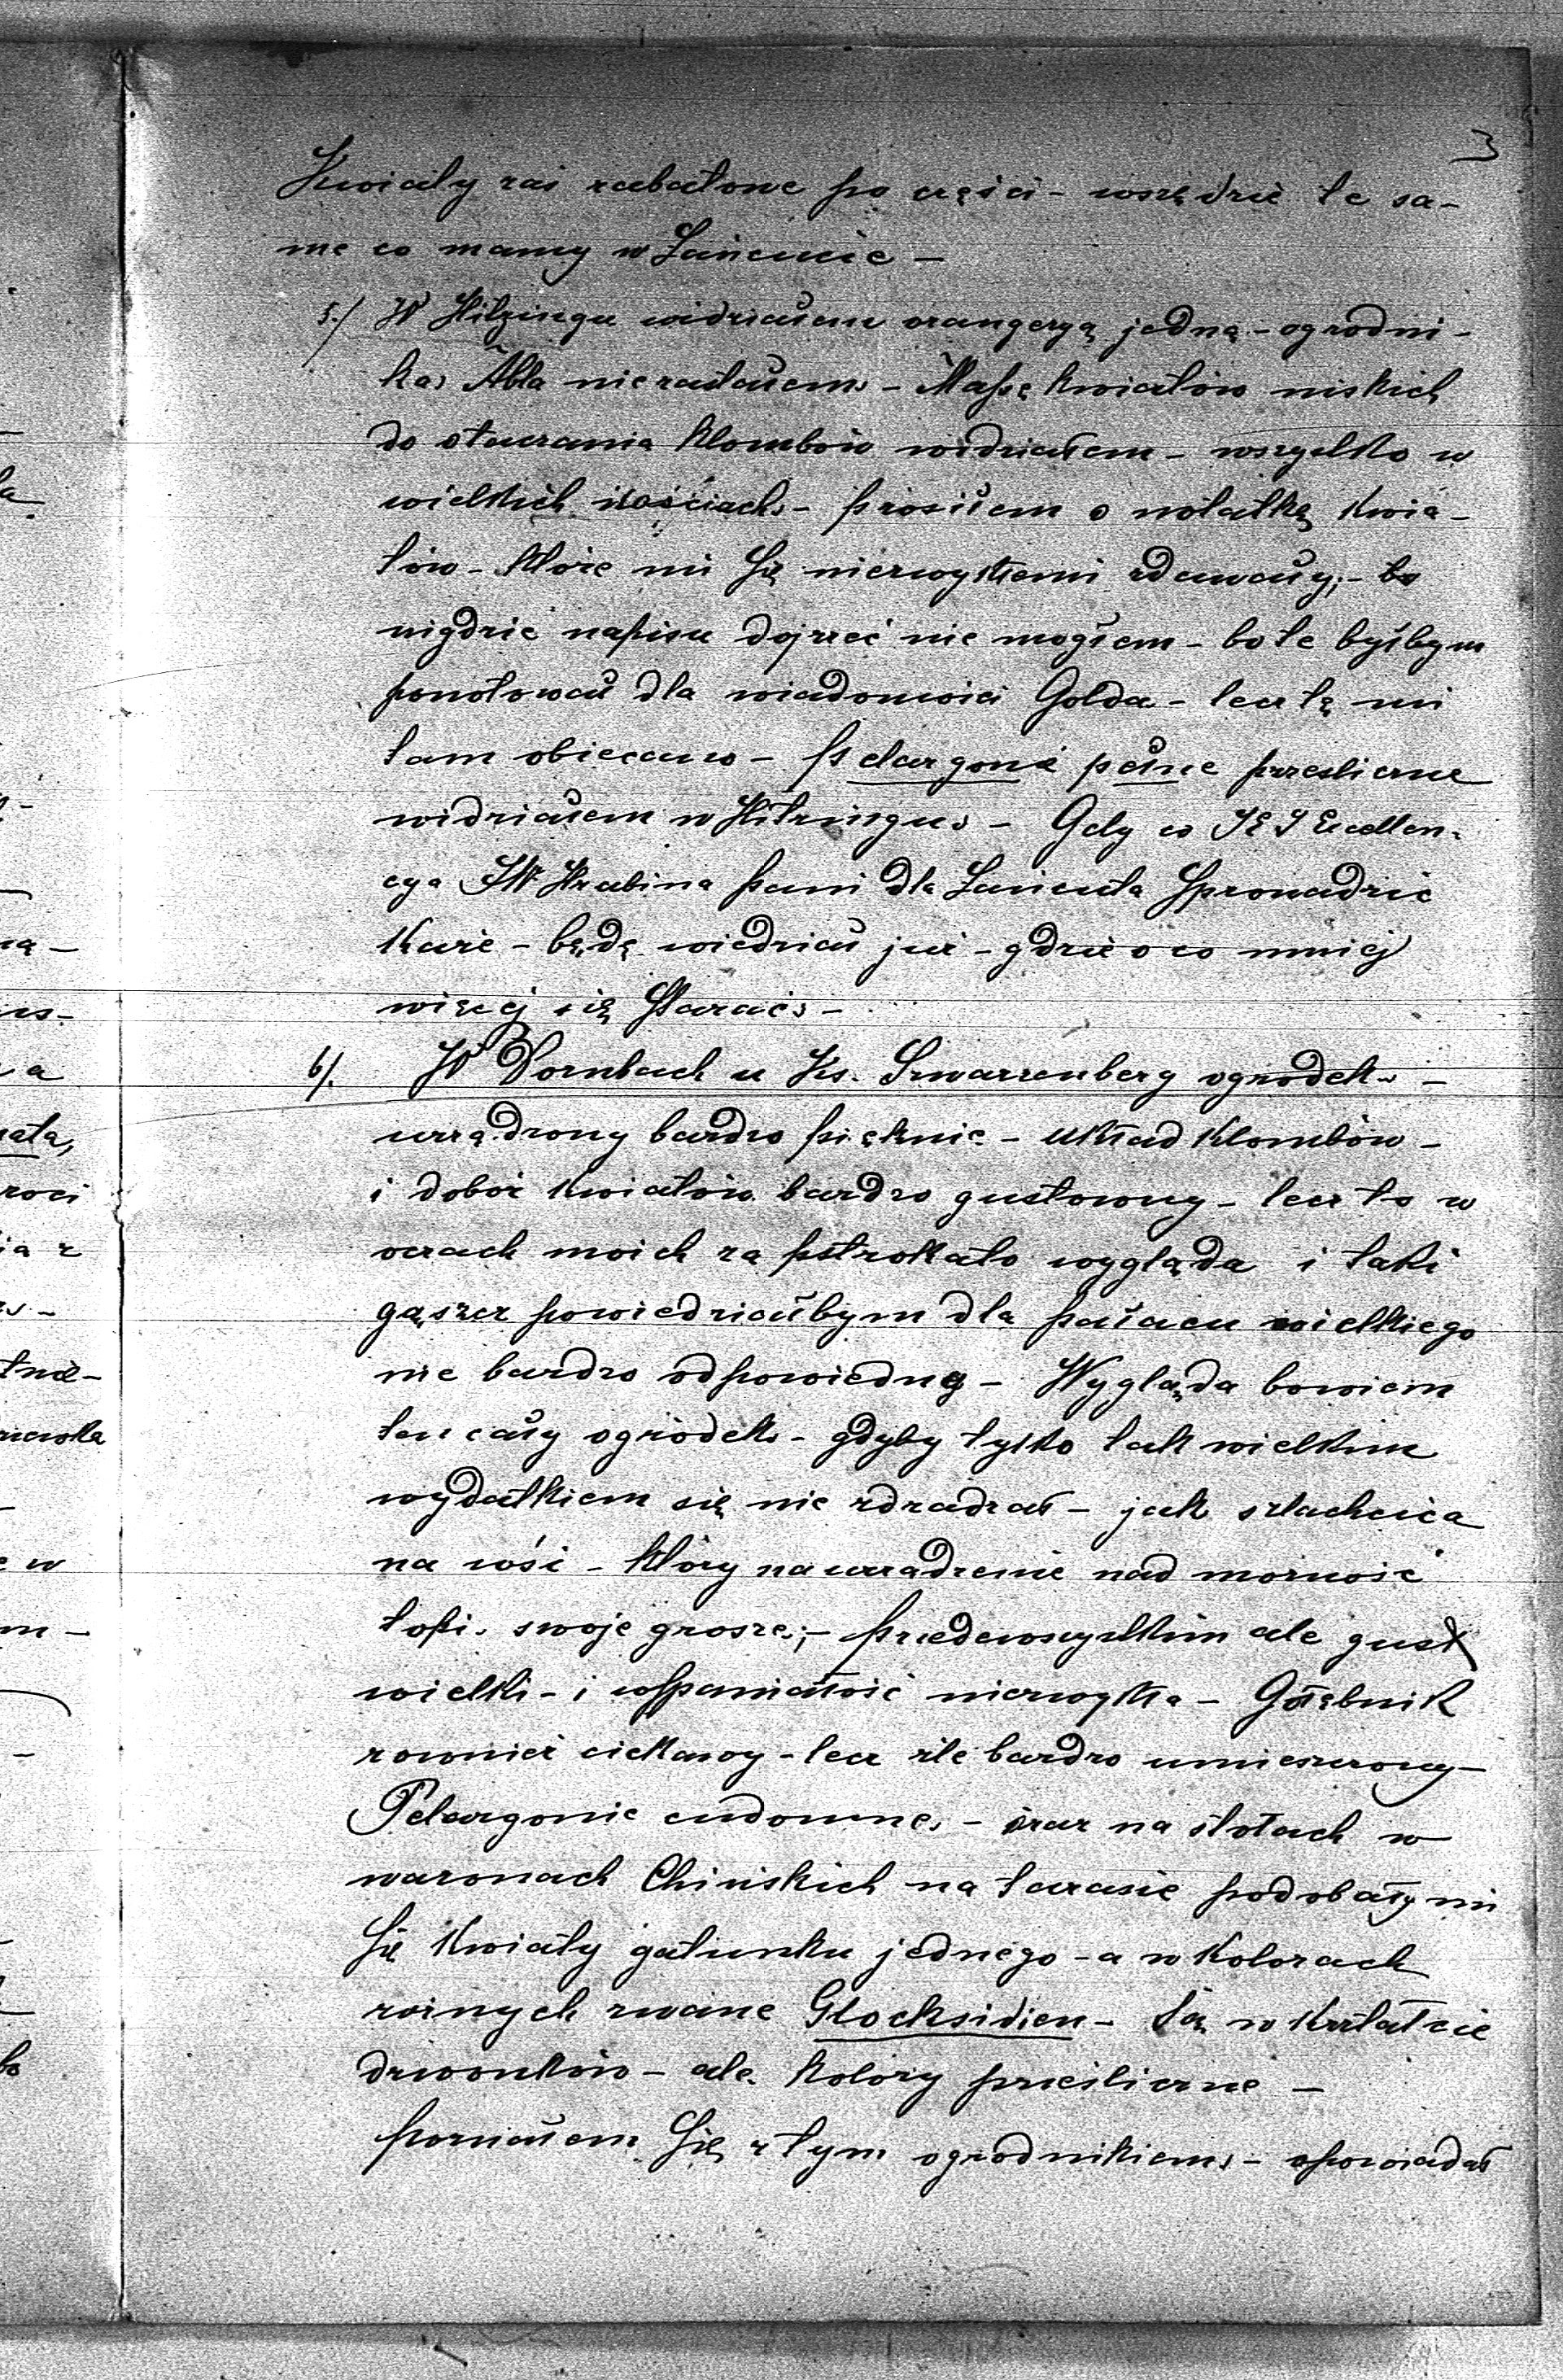 3
Kwiaty zaś rabatowe po części – wszędzie te sa-
me co mamy w Łańcucie –
5./ W Hitzingu widziałem oranżeryą jedną – ogrodni-
ka, Abla nie zastałem, – Massę kwiatów niskich
do otaczania klombów widziałem – wszystko w
wielkich ilościach, – prosiłem o notatkę kwia-
tów – które mi się niezwykłemi zdawały; – bo
nigdzie napisu dojrzeć nie mogłem – bo te byłbym
ponotował dla wiadomości Golda – lecz tę mi
tam obiecano – Pelargonie pełne prześliczne
widziałem w Hitzingu, – Gdy co JEJ Excellen-
cya JW Hrabina Pani dla Łańcuta Sprowadzić
Każe – będę wiedział już – gdzie o co mniej
więcej się Starać, –
6/. W Dornbach u Ks. Szwarzenberg ogrodek, –
urządzony bardzo pięknie – układ klombów –
i dobór kwiatów bardzo gustowny – lecz to w
oczach moich za pstrokato wygląda i taki
gąszcz powiedziałbym dla pałacu wielkiego
nie bardzo odpowiedny – Wygląda bowiem
ten cały ogródek – gdyby tylko tak wielkim
wydatkiem się nie zdradzał – jak szlachcica
na wsi – który na urządzenie nad możność
topi swoje grosze; – przedewszystkim ale gust
wielki – i wspaniałość niezwykła – Gołębnik
rownież ciekawy – lecz źle bardzo umieszczony –
Pelargonie cudowne, – oraz na stołach w
wazonach Chińskich na tarasie podobały mi
Się Kwiaty gatunku jednego – a w Kolorach
rożnych zwane Glocksidien – Są w Kształcie
dzwonków – ale kolory prześliczne –
poznałem Się z tym ogrodnikiem, – opowiadał